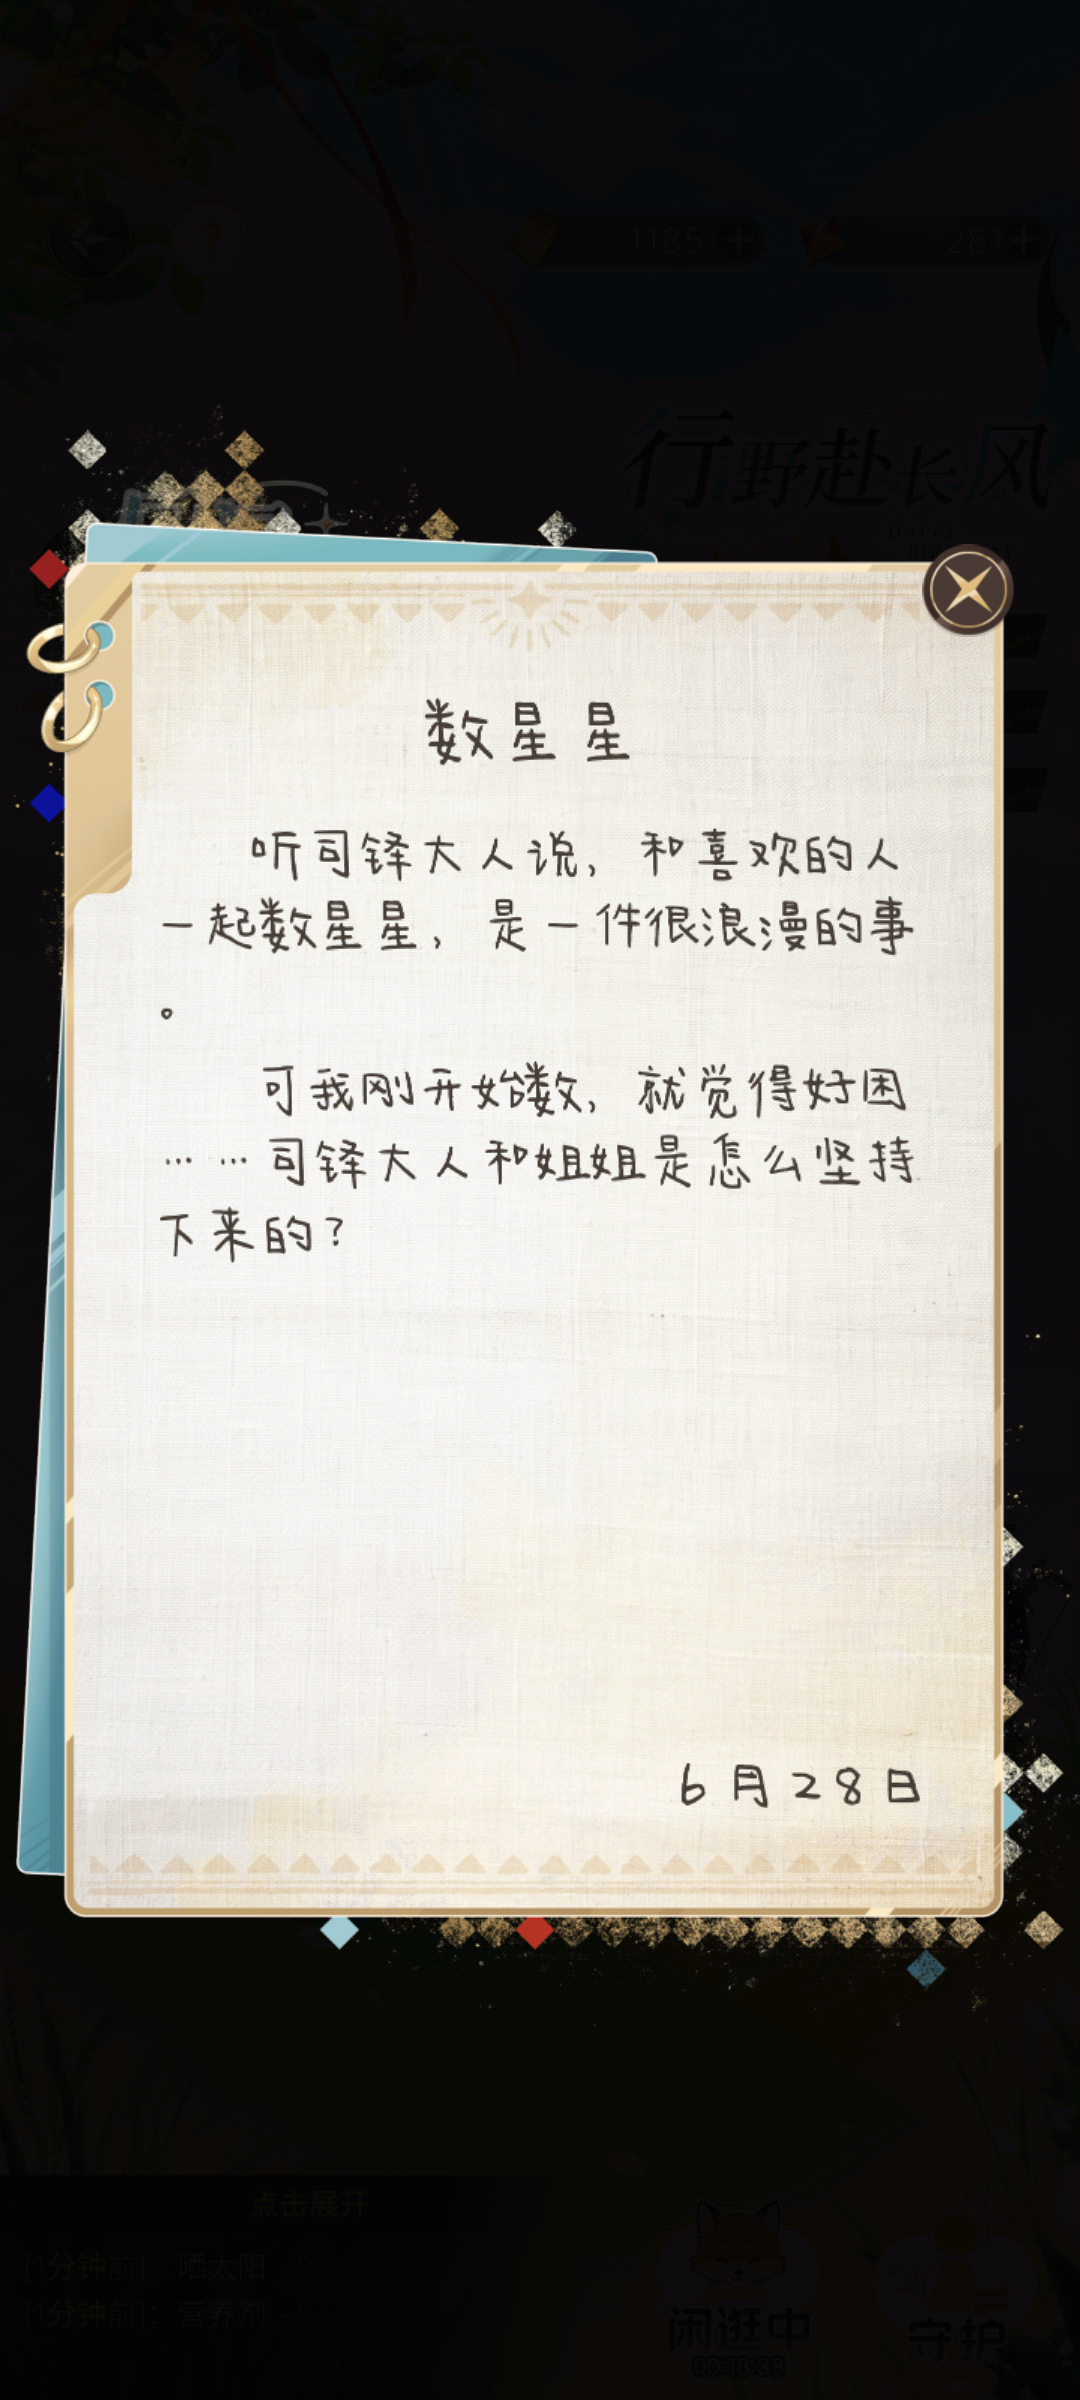 1185
28
行野赴长风
HAPPY
数星星
听司铎大人说，和喜欢的人
一起数星星，是一件很浪漫的事
。
可我刚开始数，就觉得好困
……司铎大人和姐姐是怎么坚持
下来的？
6月28日
点击展开
[1分钟前]：晒太阳
[1分钟前]：营养剂
闲逛中
守护
00:18:38